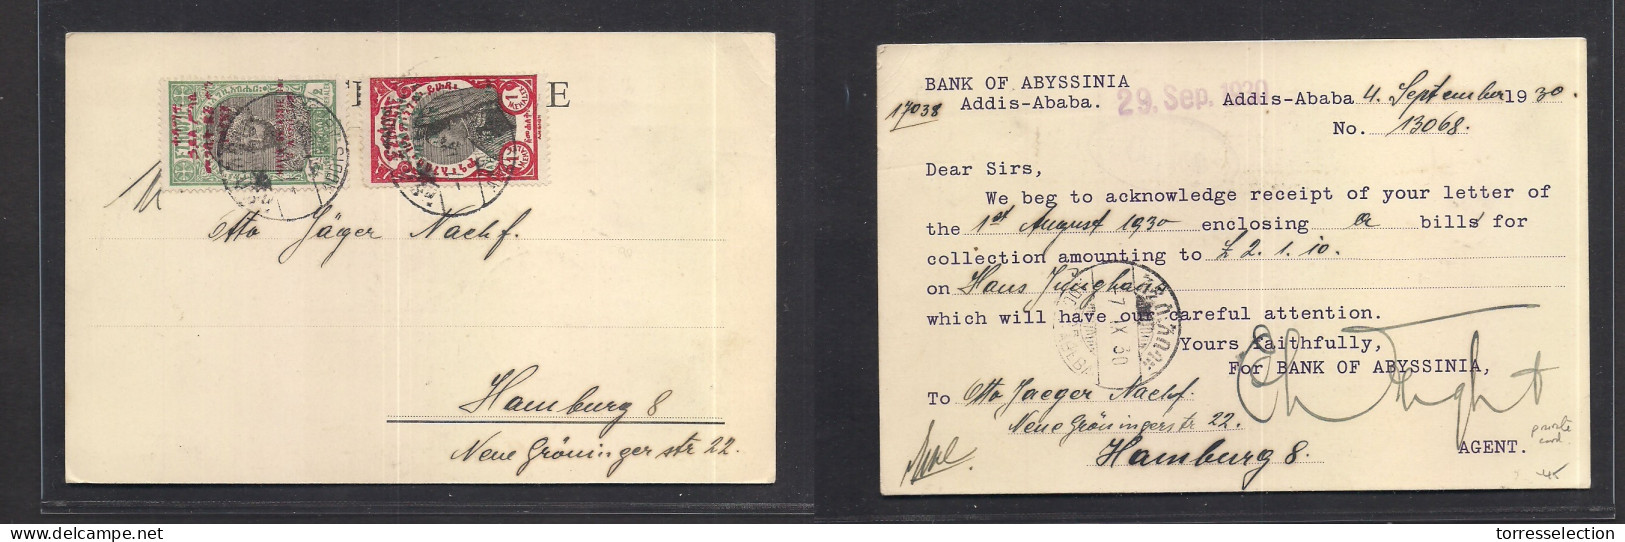 E
2
1
MEHALEK
Otto Jäger Nachf.
Hamburg 8
Neue Gröninger str 22.
BANK OF ABYSSINIA
Addis-Ababa.
17038
29. Sep. 1930
Addis-Ababa 4. September 1930.
No. 13068.
Dear Sirs,
We beg to acknowledge receipt of your letter of
the 1st August 1930 enclosing a bills for
collection amounting to £ 2.1.10.
on Hans Junghans
which will have our careful attention.
7 IX 30
Yours faithfully,
For BANK OF ABYSSINIA,
To Otto Jaeger Nachf.
Neue Gröningerstr 22.
Hamburg 8.
AGENT.
private
card.
delcampe.net
torresselection